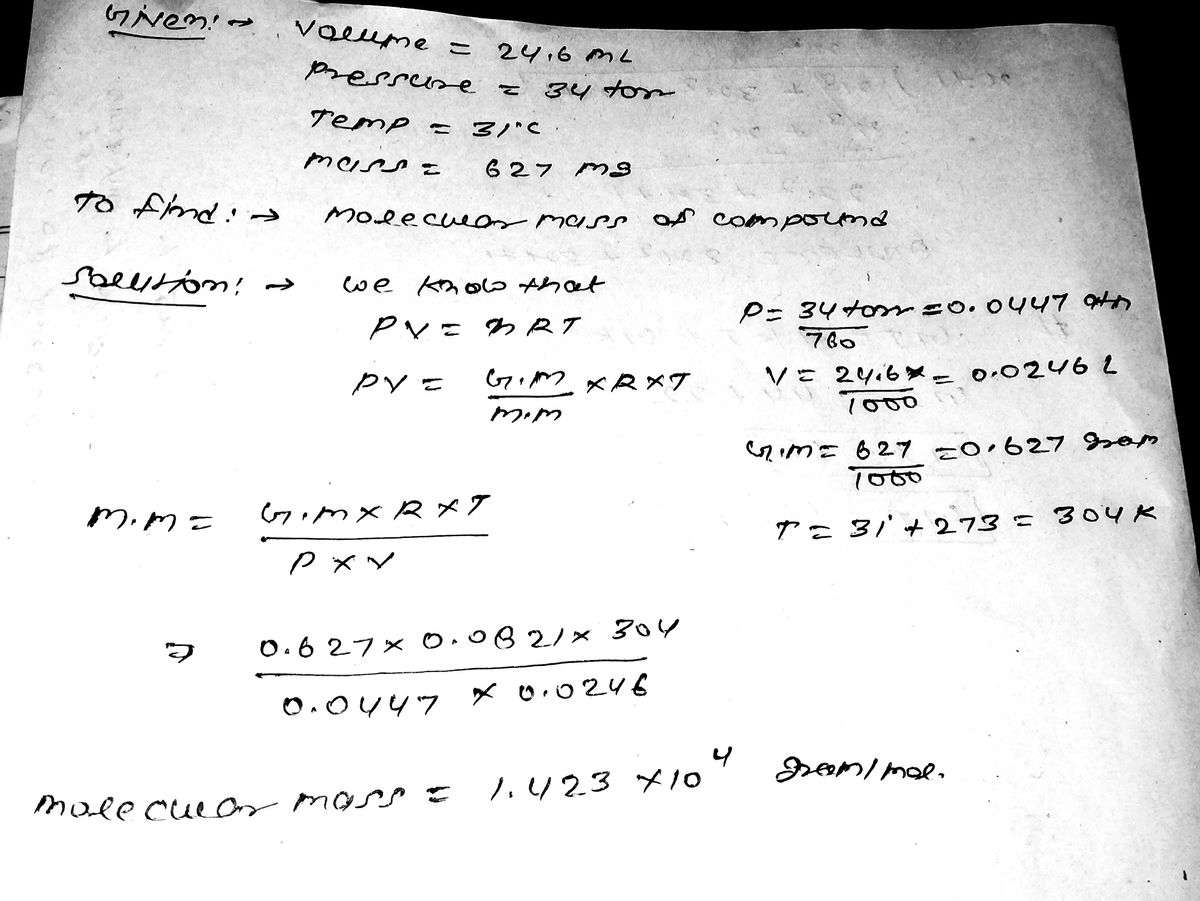 Given:→ Volume = 24.6 mL
Pressure = 34 torr
Temp = 31°C
mass = 627 mg
To find:→ molecular mass of compound
Solution:→ we know that
PV = nRT
P = 34 torr/760 = 0.0447 atm
PV = G.M/M.M × R × T
V = 24.6/1000 = 0.0246 L
G.M = 627/1000 = 0.627 gram
M.M = G.M × R × T / P × V
T = 31 + 273 = 304 K
⇒ 0.627 × 0.0821 × 304 / 0.0447 × 0.0246
molecular mass = 1.423 × 10⁴ gram/mol.